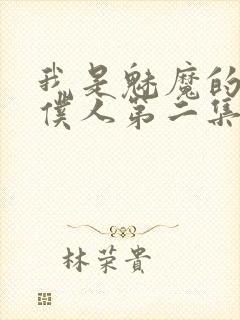 我是魅魔的
僕人第二集
林荣貴